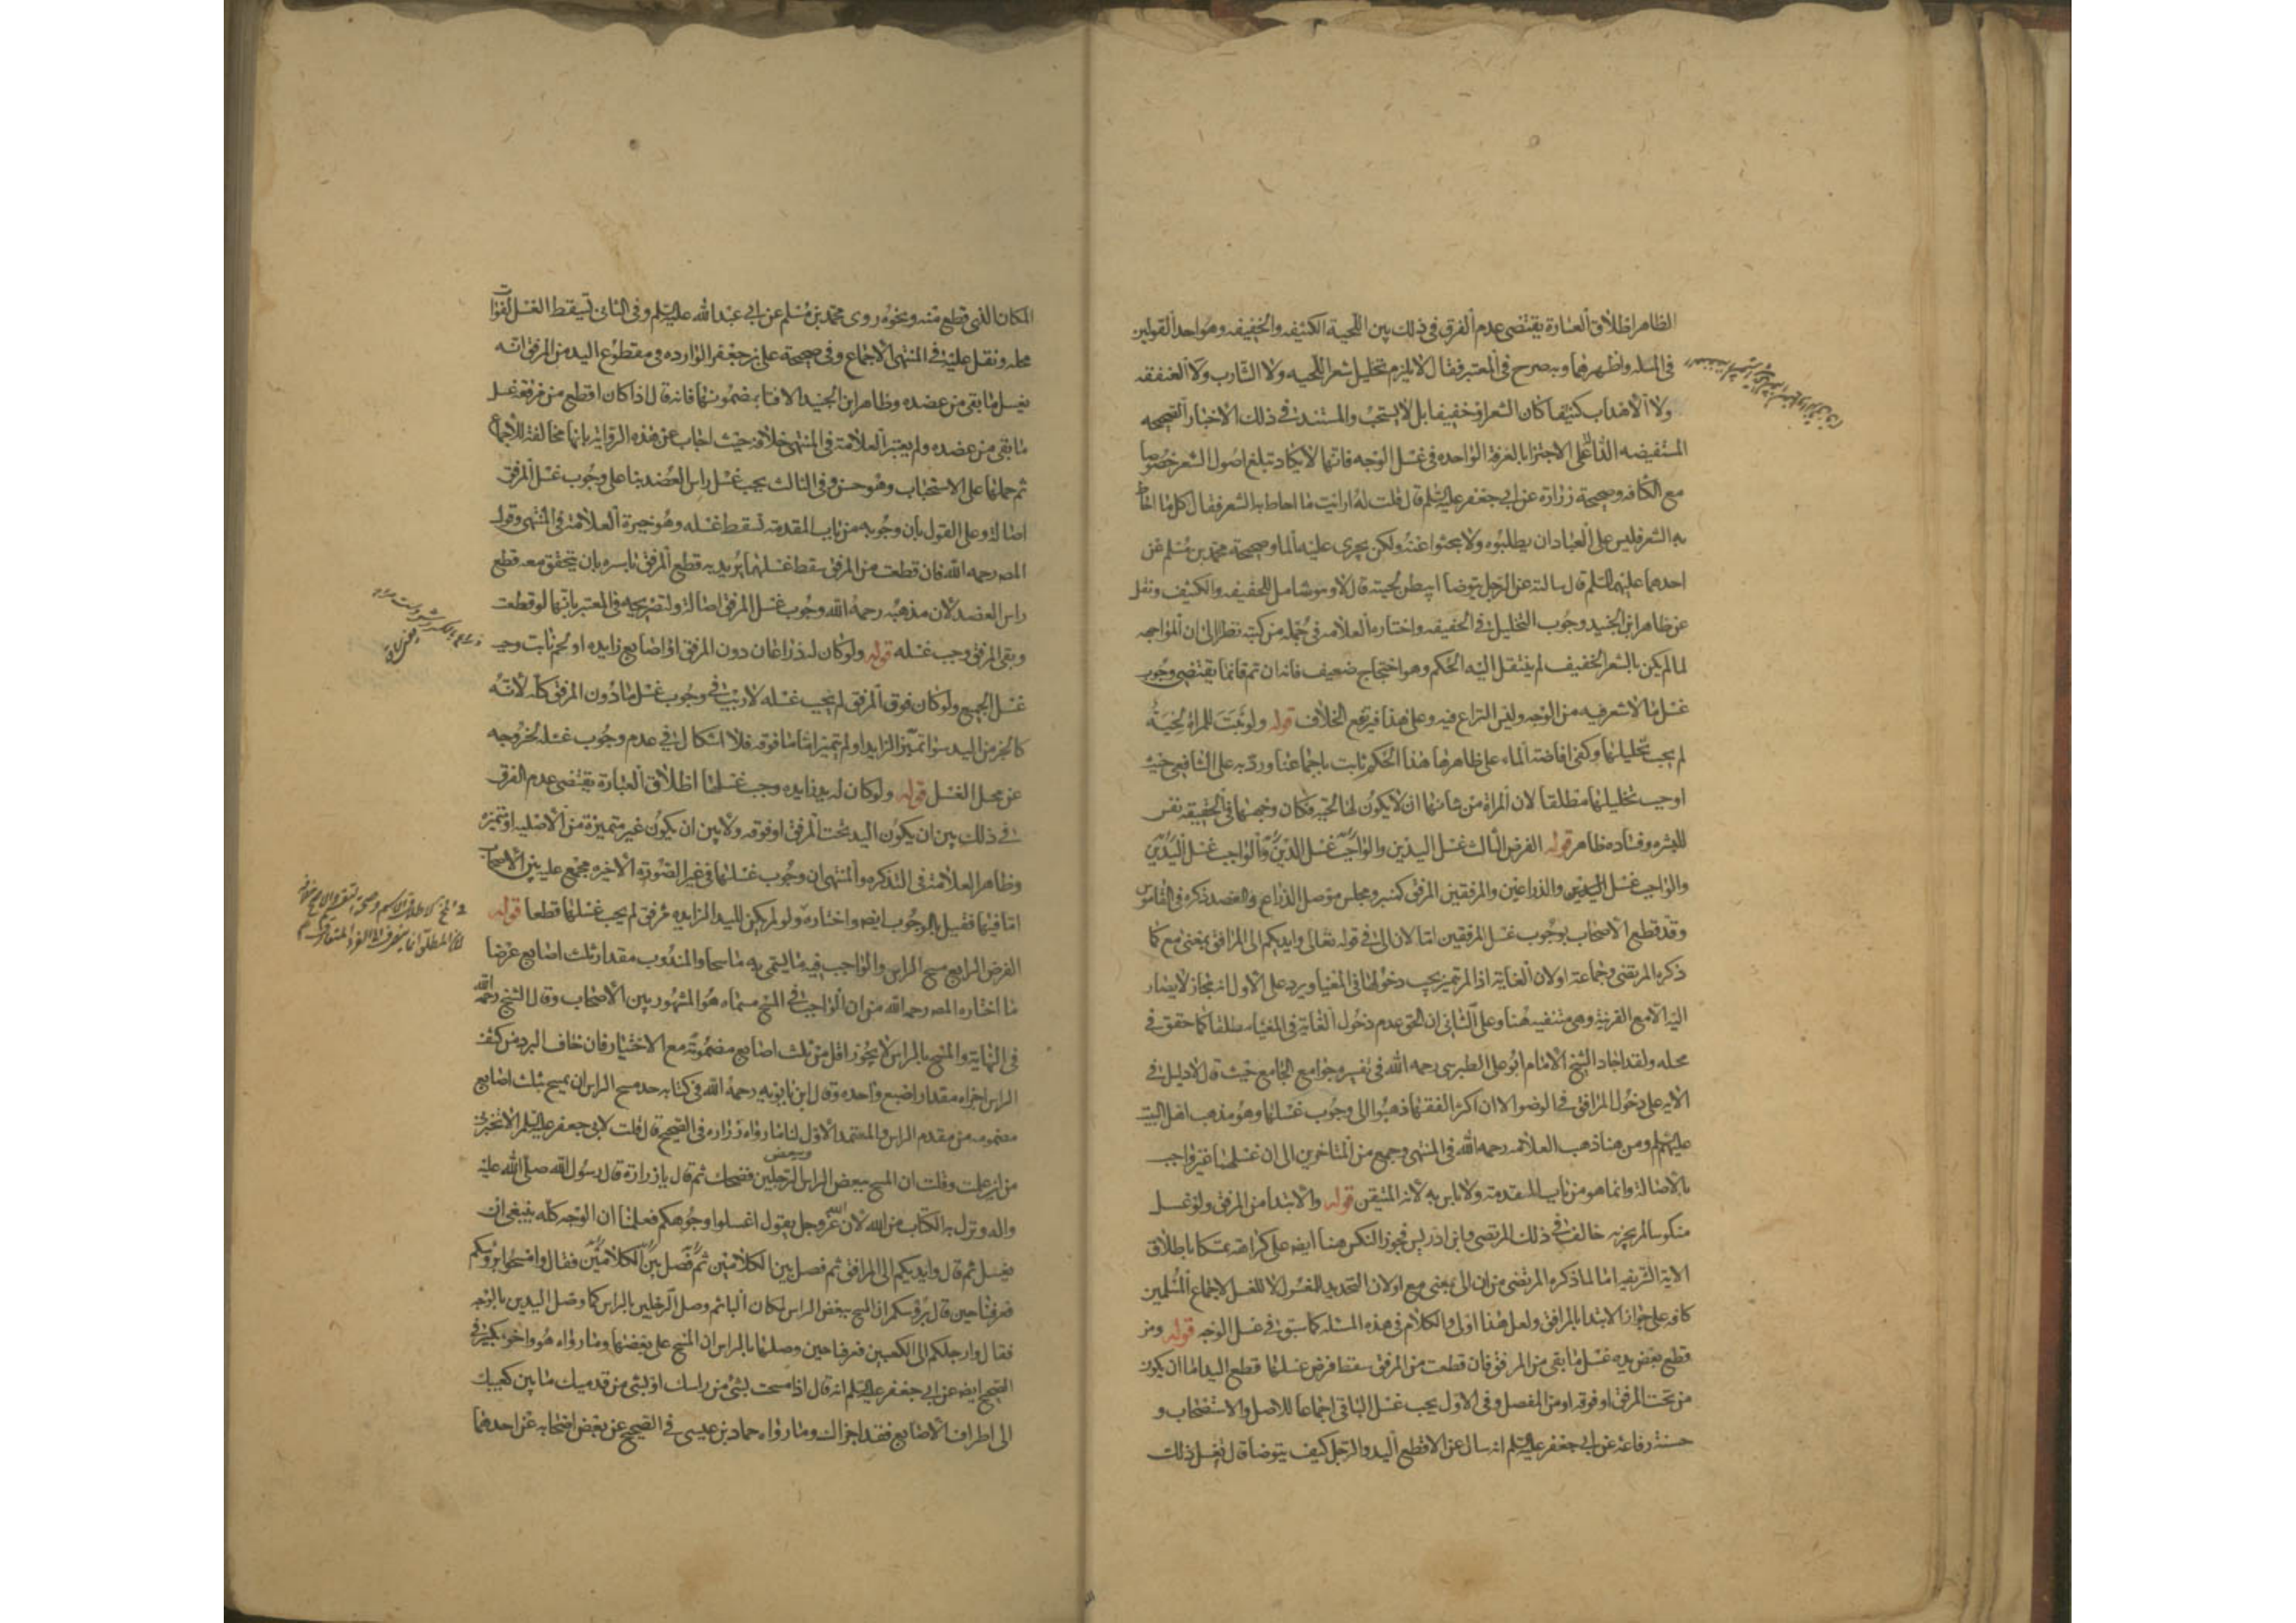 الظاهر اطلاق العبارة يقتضى عدم الفرق فى ذلك بين اللحية الكثيفه والخفيفه وهو احد القولين
فى المسله واظهرهما وبه صرح فى المعتبر فقال لا يلزم تخليل شعر اللحيه ولا الشارب ولا العنفقه
ولا الاهداب كثيفا كان الشعر او خفيفا بل لا يستحب والمستند فى ذلك الاخبار الصحيحه
المستفيضه الداله على الاجتزا بالغرفة الواحده فى غسل الوجه فانها لا يكاد تبلغ اصول الشعر خصوصا
مع الكثافه وصحيحة زرارة عن ابى جعفر عليه السلم قال قلت له ارايت ما احاط به الشعر فقال كل ما احاط
به الشعر فليس على العباد ان يطلبوه ولا يبحثوا عنه ولكن يجرى عليه الما وصحيحة محمد بن مسلم عن
احدهما عليهما السلم قال سالته عن الرجل يتوضا ايبطن لحيته قال لا وهو شامل للخفيفه والكثيف ونقل
عن ظاهر ابن الجنيد وجوب التخليل فى الخفيفه واختاره العلامه فى جمله من كتبه نظرا الى ان المواجهه
لما لم يكن بالشعر الخفيف لم ينتقل اليه الحكم وهو احتجاج ضعيف فانه ان تم فانما يقتضى وجوب
غسل ما لا شعر فيه من الوجه وليس النزاع فيه وعلى هذا فيرتفع الخلاف قوله ولو نبتت للمراة لحية
لم يجب تخليلها وكفى افاضة الماء على ظاهرها هذا الحكم ثابت باجماعنا ورد به على الشافعى حيث
اوجب تخليلها مطلقا لان المراة من شانها ان لا يكون لها لحيه فكان وجهها فى الحقيقه نفس
البشره وفساده ظاهر قوله الفرض الثالث غسل اليدين والواجب غسل
والواجب غسل اليدين والذراعين والمرفقين المرفق كمنبر ومجلس موصل الذراع والعضد ذكره فى القاموس
وقد قطع الاصحاب بوجوب غسل المرفقين اما لان الى فى قوله تعالى وايديكم الى المرافق بمعنى مع كما
ذكره المرتضى وجماعة او لان الغاية اذا لم تتميز يجب دخولها فى المغيا ويرد على الاول انه مجاز لا يصار
اليه الا مع القرينة وهى منتفيه هنا وعلى الثانى ان الحق عدم دخول الغاية فى المغيا مطلقا كما حقق فى
محله ولقد اجاد الشيخ الامام ابو على الطبرسى رحمه الله فى تفسيره جوامع الجامع حيث قال لا دليل فى
الايه على دخول المرافق فى الوضو الا ان اكثر الفقها ذهبوا الى وجوب غسلها وهو مذهب اهل البيت
عليهم السلم ومن هنا ذهب العلامه رحمه الله فى المنتهى وجمع من المتاخرين الى ان غسلهما غير واجب
بالاصالة وانما هو من باب المقدمة ولا باس به لانه المتيقن قوله والابتدا من المرفق ولو غسل
منكوسا لم يجز به خالف فى ذلك المرتضى وابن ادريس فجوز النكس هنا ايضا على كراهة تمسكا باطلاق
الاية الشريفه اما لما ذكره المرتضى من ان الى بمعنى مع او لان التحديد للمغسول لا للغسل لاجماع المسلمين
كافه على جواز الابتدا بالمرافق ولعل هذا اولى والكلام فى هذه المسئله كما سبق فى غسل الوجه قوله ومن
قطع بعض يده غسل ما بقى من المرفق فان قطعت من المرفق سقط فرض غسلها قطع اليد اما ان يكون
من تحت المرفق او فوقه او من المفصل وفى الاول يجب غسل الباقى اجماعا للاصل والاستصحاب و
حسنة رفاعه عن ابى جعفر عليه السلم انه سال عن الاقطع اليد والرجل كيف يتوضا قال يغسل ذلك
المكان الذى قطع منه ونحوه روى محمد بن مسلم عن ابى عبد الله عليه السلم وفى الثانى يسقط الغسل لفوات
محله ونقل عليه فى المنتهى الاجماع وفى صحيحة على بن جعفر الوارده فى مقطوع اليد من المرفق انه
يغسل ما بقى من عضده وظاهر ابن الجنيد الافتا بمضمونها فانه قال اذا كان اقطع من مرفقه غسل
ما بقى من عضده ولم يعتبر العلامة فى المنتهى خلافه حيث اجاب عن هذه الرواية بانها مخالفة للاجماع
ثم حملها على الاستحباب وهو حسن وفى الثالث يجب غسل راس العضد بنا على وجوب غسل المرفق
اصالة وعلى القول بان وجوبه من باب المقدمة يسقط غسله وهو خيرة العلامة فى المنتهى وقول
المص رحمه الله فان قطعت من المرفق سقط غسلها يريد به قطع المرفق باسره بان يتحقق معه قطع
راس العضد لان مذهبه رحمه الله وجوب غسل المرفق اصالة ولتصريحه فى المعتبر بانها لو قطعت
وبقى المرفق وجب غسله قوله ولو كان له ذراعان دون المرفق او اصابع زايده او لحم نابت وجب
غسل الجميع ولو كان فوق المرفق لم يجب غسله لا ريب فى وجوب غسل ما دون المرفق كله لانه
كالجزء من اليد سوا تميز الزايد او لم يتميز اما ما فوقه فلا اشكال فى عدم وجوب غسله لخروجه
عن محل الغسل قوله ولو كان له يد زايده وجب غسلها اطلاق العبارة يقتضى عدم الفرق
فى ذلك بين ان يكون اليد تحت المرفق او فوقه ولا بين ان يكون غير متميزة من الاصليه او متميزه
وظاهر العلامة فى التذكره والمنتهى ان وجوب غسلها فى غير الصورة الاخيره مجمع عليه بين الاصحاب
اما فيها فقيل بالوجوب ايضا واختاره ولو لم يكن لليد الزايده مرفق لم يجب غسلها قطعا قوله
الفرض الرابع مسح الراس والواجب فيه ما يسمى به ماسحا والمندوب مقدار ثلث اصابع عرضا
ما اختاره المص رحمه الله من ان الواجب فى المسح مسماه هو المشهور بين الاصحاب وقال الشيخ رحمه الله
فى النهاية والمسح بالراس لا يجوز اقل من ثلث اصابع مضمومة مع الاختيار فان خاف البرد من كشف
الراس اجزاه مقدار اصبع واحده وقال ابن بابويه رحمه الله فى كتابه حد مسح الراس ان يمسح بثلث اصابع
مضمومه من مقدم الراس والمعتمد الاول لنا ما رواه زراره فى الصحيح قال قلت لابى جعفر عليه السلم الا تخبرنى
من اين علمت وقلت ان المسح ببعض الراس وببعض الرجلين فضحك ثم قال يا زرارة قال رسول الله صلى الله عليه
واله ونزل به الكتاب من الله لان الله عز وجل يقول اغسلوا وجوهكم فعلمنا ان الوجه كله ينبغى ان
يغسل ثم قال وايديكم الى المرافق ثم فصل بين الكلامين ثم فصل بين الكلامين فقال وامسحوا برؤسكم
فعرفنا حين قال برؤسكم ان المسح ببعض الراس لمكان البا ثم وصل الرجلين بالراس كما وصل اليدين بالوجه
فقال وارجلكم الى الكعبين فعرفنا حين وصلها بالراس ان المسح على بعضها وما رواه هو واخوه بكير فى
الصحيح ايضا عن ابى جعفر عليه السلم انه قال اذا مسحت بشئ من راسك او بشئ من قدميك ما بين كعبيك
الى اطراف الاصابع فقد اجزاك وما رواه حماد بن عيسى فى الصحيح عن بعض اصحابه عن احدهما